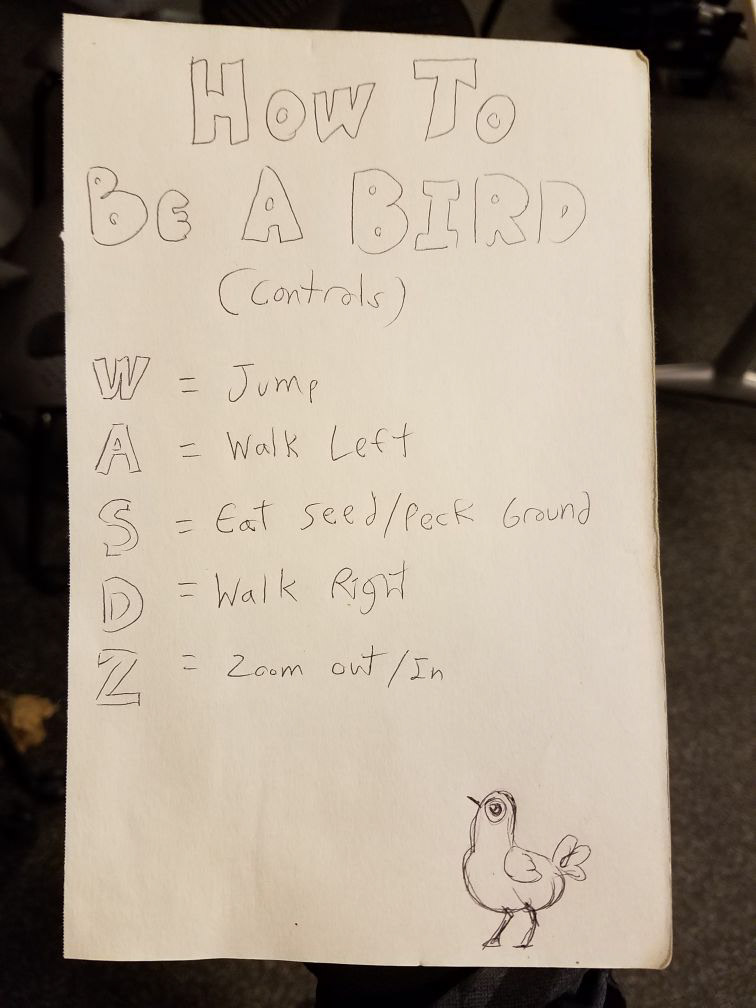 How To
Be A BIRD
(Controls)
W = Jump
A = Walk Left
S = Eat Seed/Peck Ground
D = Walk Right
Z = Zoom out/In